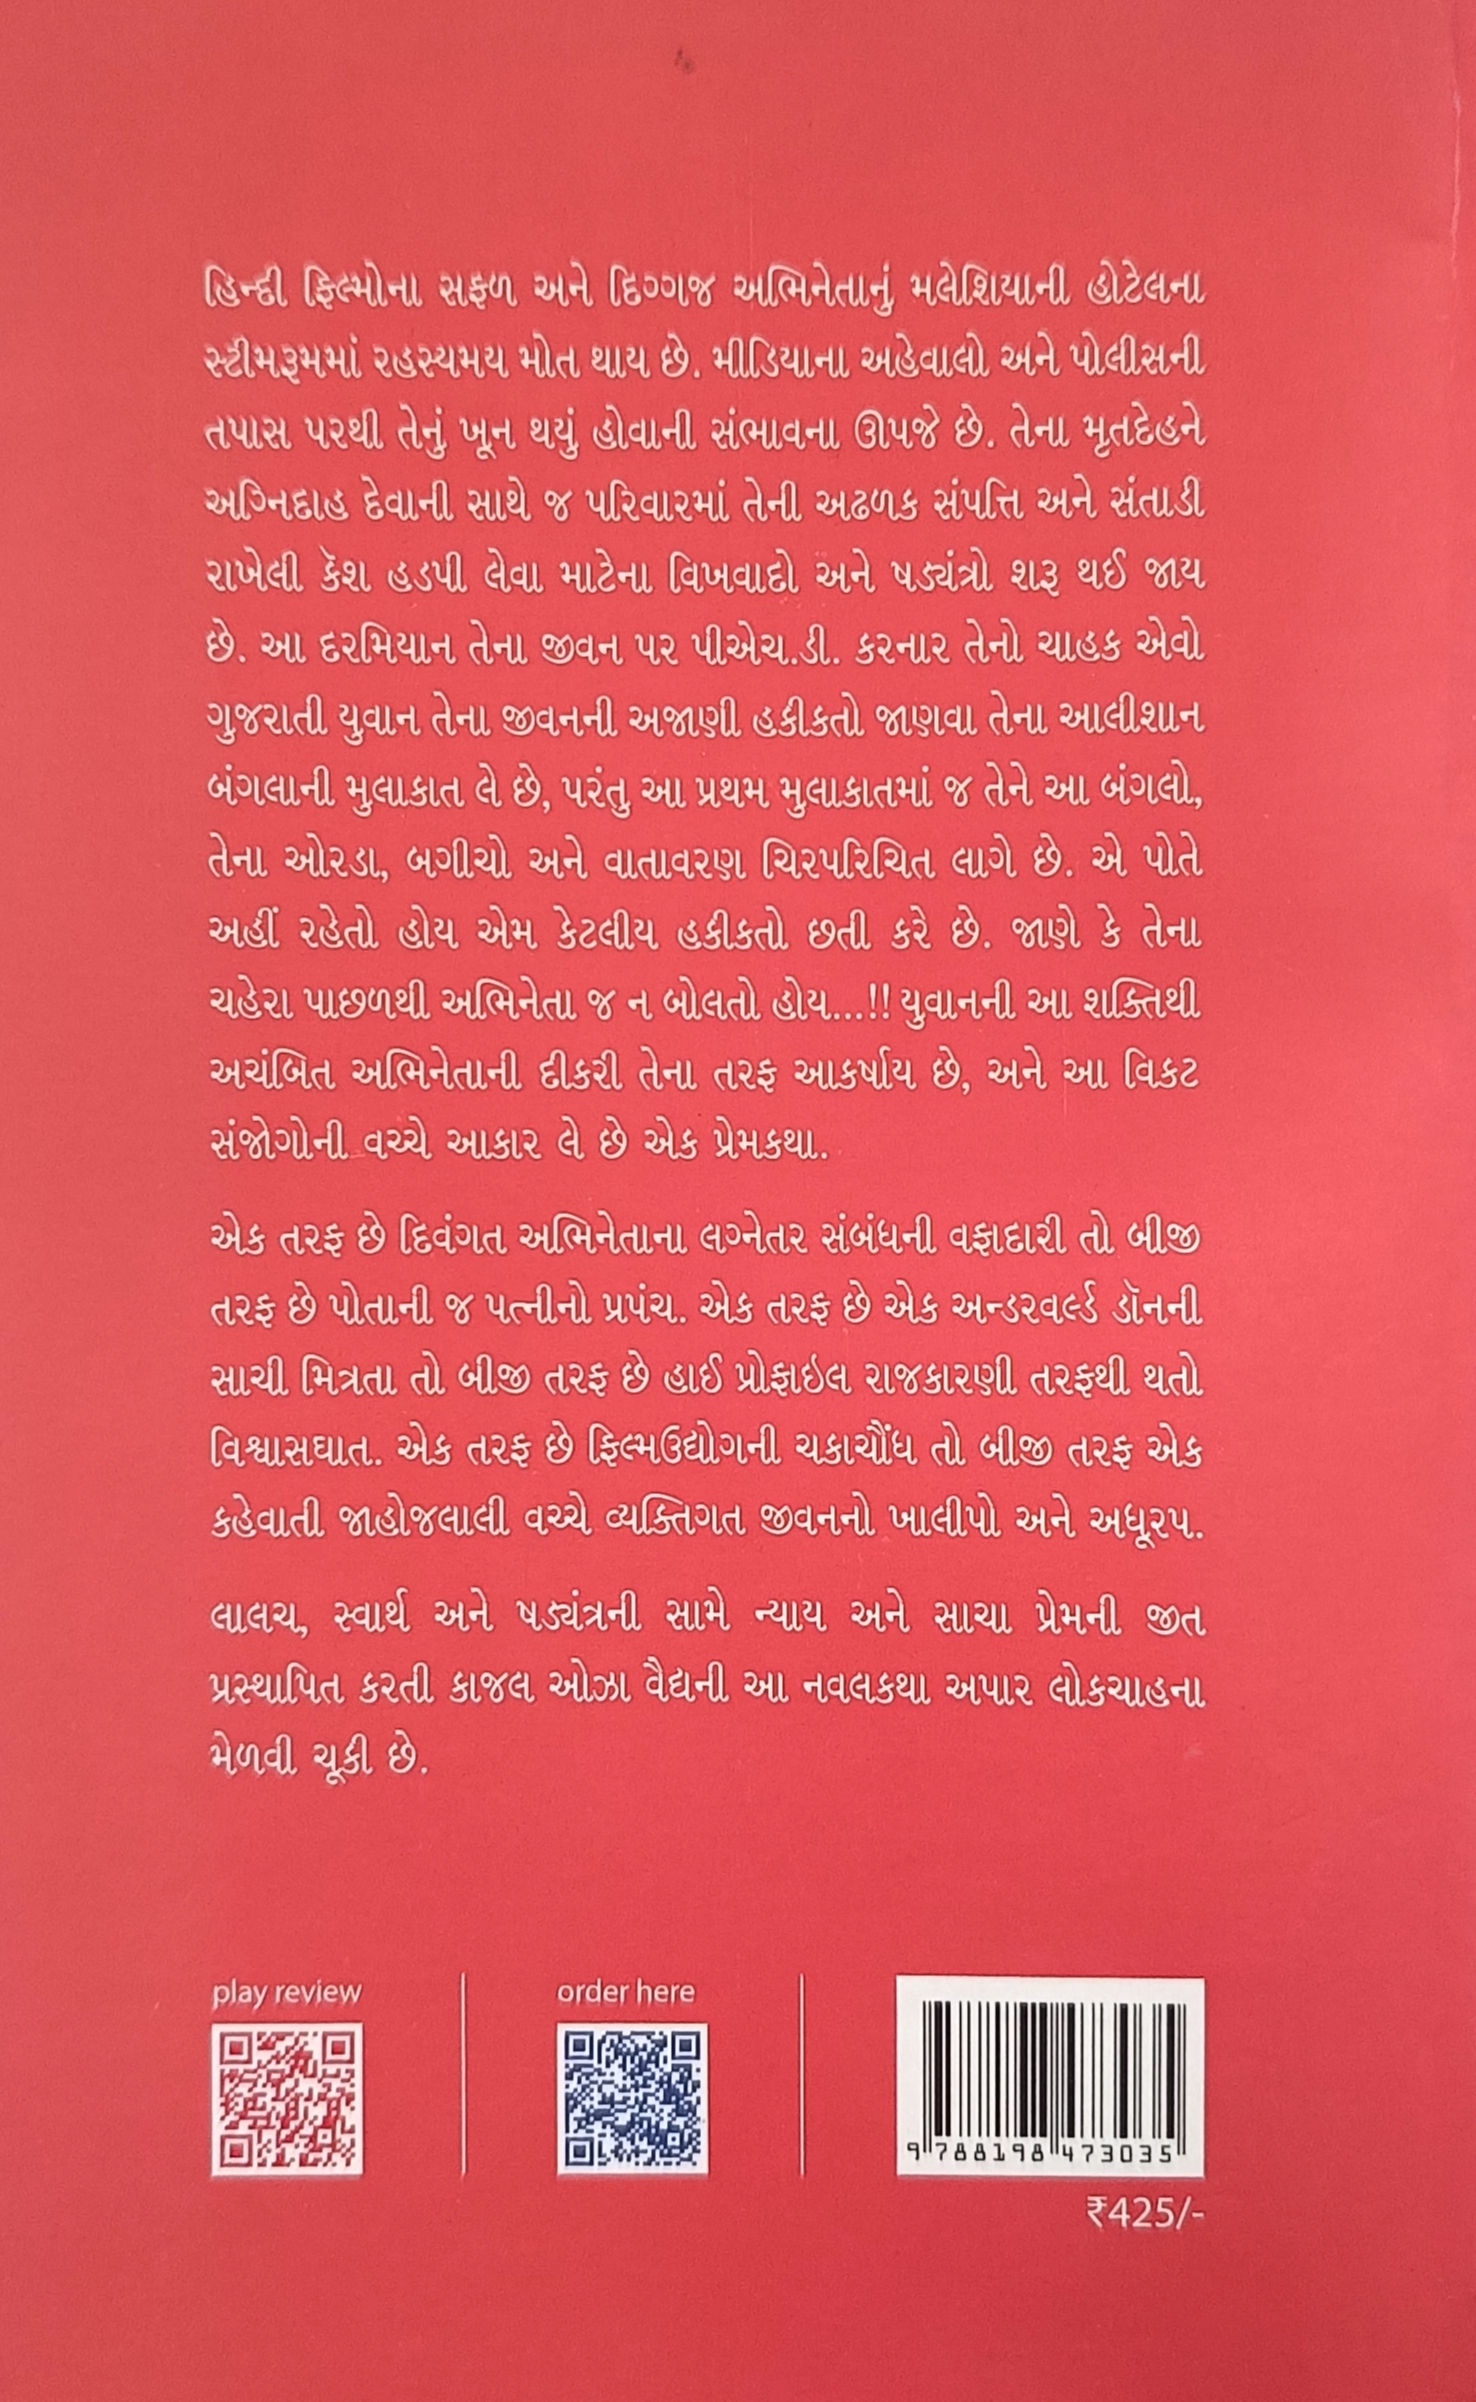 હિન્દી ફિલ્મોના સફળ અને દિગ્ગજ અભિનેતાનું મલેશિયાની હોટેલના
સ્ટીમરૂમમાં રહસ્યમય મોત થાય છે. મીડિયાના અહેવાલો અને પોલીસની
તપાસ પરથી તેનું ખૂન થયું હોવાની સંભાવના ઊપજે છે. તેના મૃતદેહને
અગ્નિદાહ દેવાની સાથે જ પરિવારમાં તેની અઢળક સંપત્તિ અને સંતાડી
રાખેલી કૅશ હડપી લેવા માટેના વિખવાદો અને ષડ્યંત્રો શરૂ થઈ જાય
છે. આ દરમિયાન તેના જીવન પર પીએચ.ડી. કરનાર તેનો ચાહક એવો
ગુજરાતી યુવાન તેના જીવનની અજાણી હકીકતો જાણવા તેના આલીશાન
બંગલાની મુલાકાત લે છે, પરંતુ આ પ્રથમ મુલાકાતમાં જ તેને આ બંગલો,
તેના ઓરડા, બગીચો અને વાતાવરણ ચિરપરિચિત લાગે છે. એ પોતે
અહીં રહેતો હોય એમ કેટલીય હકીકતો છતી કરે છે. જાણે કે તેના
ચહેરા પાછળથી અભિનેતા જ ન બોલતો હોય...!! યુવાનની આ શક્તિથી
અચંબિત અભિનેતાની દીકરી તેના તરફ આકર્ષાય છે, અને આ વિકટ
સંજોગોની વચ્ચે આકાર લે છે એક પ્રેમકથા.
એક તરફ છે દિવંગત અભિનેતાના લગ્નેતર સંબંધની વફાદારી તો બીજી
તરફ છે પોતાની જ પત્નીનો પ્રપંચ. એક તરફ છે એક અન્ડરવર્લ્ડ ડૉનની
સાચી મિત્રતા તો બીજી તરફ છે હાઈ પ્રોફાઇલ રાજકારણી તરફથી થતો
વિશ્વાસઘાત. એક તરફ છે ફિલ્મઉદ્યોગની ચકાચૌંધ તો બીજી તરફ એક
કહેવાતી જાહોજલાલી વચ્ચે વ્યક્તિગત જીવનનો ખાલીપો અને અધૂરપ.
લાલચ, સ્વાર્થ અને ષડ્યંત્રની સામે ન્યાય અને સાચા પ્રેમની જીત
પ્રસ્થાપિત કરતી કાજલ ઓઝા વૈદ્યની આ નવલકથા અપાર લોકચાહના
મેળવી ચૂકી છે.
play review
order here
9 788198 473035
₹425/-